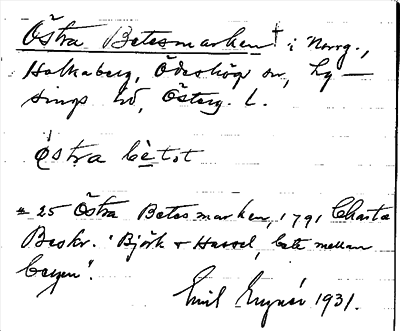 Östra Betesmarken† i Norrg.,
Holkaberg, Ödeshög sn, Ly–
sings hd, Österg. l.
östra bètɘt
= 25 Östra Betesmarken, 1791 Charta
Beskr. "Björk & Hassel, bete mellan
bergen".
Emil 1931.